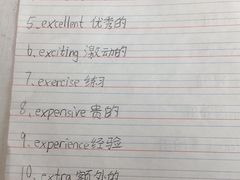 5、excellent 优秀的
6、exciting 激动的
7、exercise 练习
8、expensive 贵的
9、experience 经验
10、extra 额外的